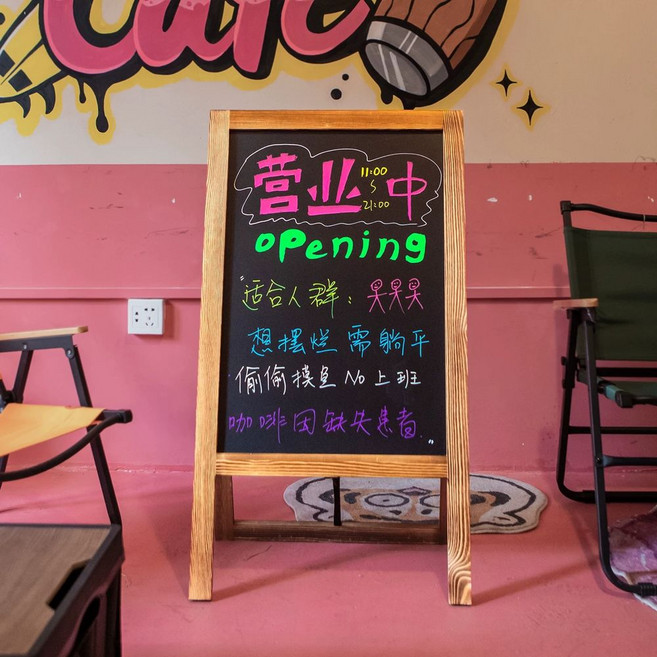 Cafe
营业中
11:00
~
21:00
opening
"适合人群：呆呆呆
想摆烂需躺平
偷偷摸鱼No上班
咖啡因缺失患者."